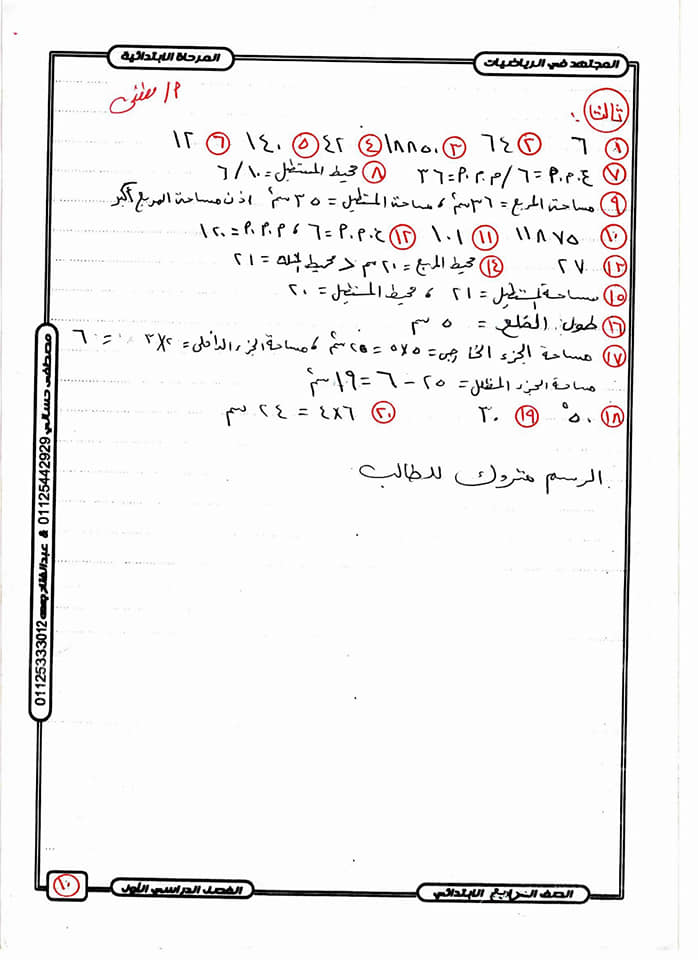 المجتهد في الرياضيات
المرحلة الابتدائية
ثالثا:
١/ مثنى
١ ٦ ٢ ٦٤ ٣ ١٨٨٥٠ ٤ ٤٢ ٥ ١٤٠ ٦ ١٢
٧ ع.م.م = ٦ / م.م.م = ٣٦ ٨ محيط المستطيل = ٦/١٠
٩ مساحة المربع = ٣٦ سم٢ ، مساحة المستطيل = ٣٥ سم٢ اذن مساحة المربع أكبر
١٠ ١١٨٧٥ ١١ ١٠١ ١٢ ع.م.م = ٦ ، م.م.م = ١٢٠
١٣ ٢٧ ١٤ محيط المربع = ٢٠ سم > محيط المثلث = ٢١
١٥ مساحة المستطيل = ٢١ ، محيط المستطيل = ٢٠
١٦ طول الضلع = ٥ سم
١٧ مساحة الجزء الخارجى = ٥×٥ = ٢٥ سم٢ ، مساحة الجزء الداخلى = ٢×٣ = ٦
مساحة الجزء المظلل = ٢٥ - ٦ = ١٩ سم٢
١٨ ٥٠° ١٩ ٣٠ ٢٠ ٦×٤ = ٢٤ سم
الرسم متروك للطالب
مصطفى حسانى 01125442929 & عبدالفتاح جمعه 01125333012
الصف الرابع الابتدائي
الفصل الدراسي الأول
١٠